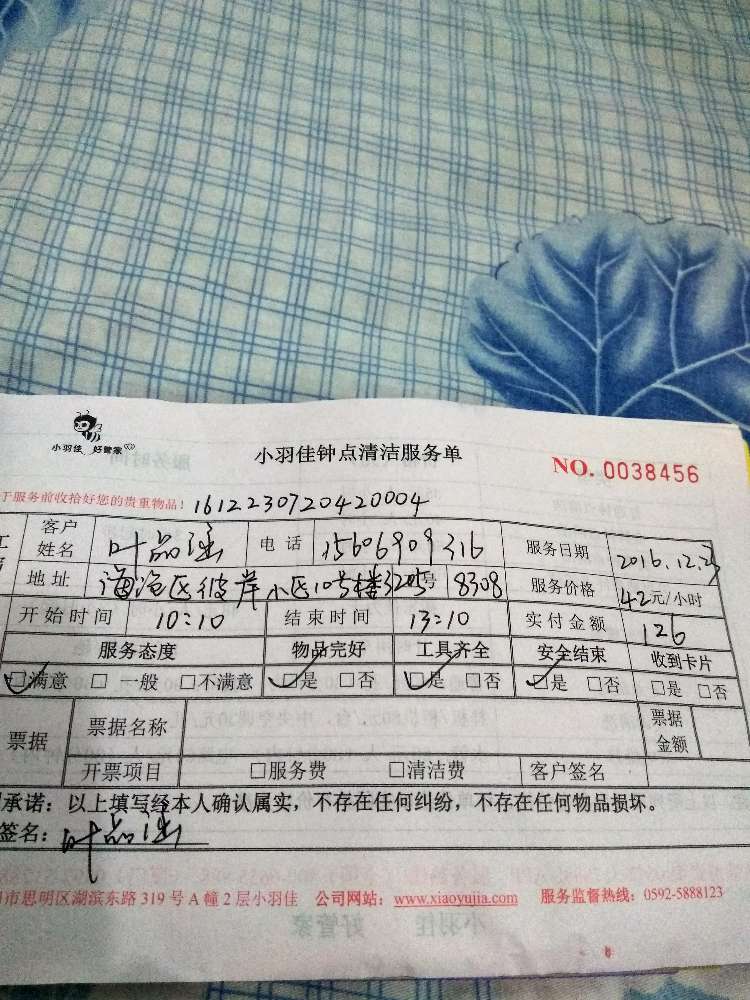 小羽佳 好管家
小羽佳钟点清洁服务单
NO. 0038456
于服务前收拾好您的贵重物品! 1612230720420004
客户姓名 叶品涵 电话 15606909316 服务日期 2016.12.23
地址 海沧区彼岸小区10号楼 号 8308 服务价格 42元/小时
开始时间 10:10 结束时间 13:10 实付金额 126
服务态度 物品完好 工具齐全 安全结束 收到卡片
☑满意 □一般 □不满意 ☑是 □否 ☑是 □否 ☑是 □否 □是 □否
票据 票据名称 票据金额
开票项目 □服务费 □清洁费 客户签名
承诺：以上填写经本人确认属实，不存在任何纠纷，不存在任何物品损坏。
签名：叶品涵
市思明区湖滨东路 319 号 A 幢 2 层小羽佳 公司网站：www.xiaoyujia.com 服务监督热线：0592-5888123